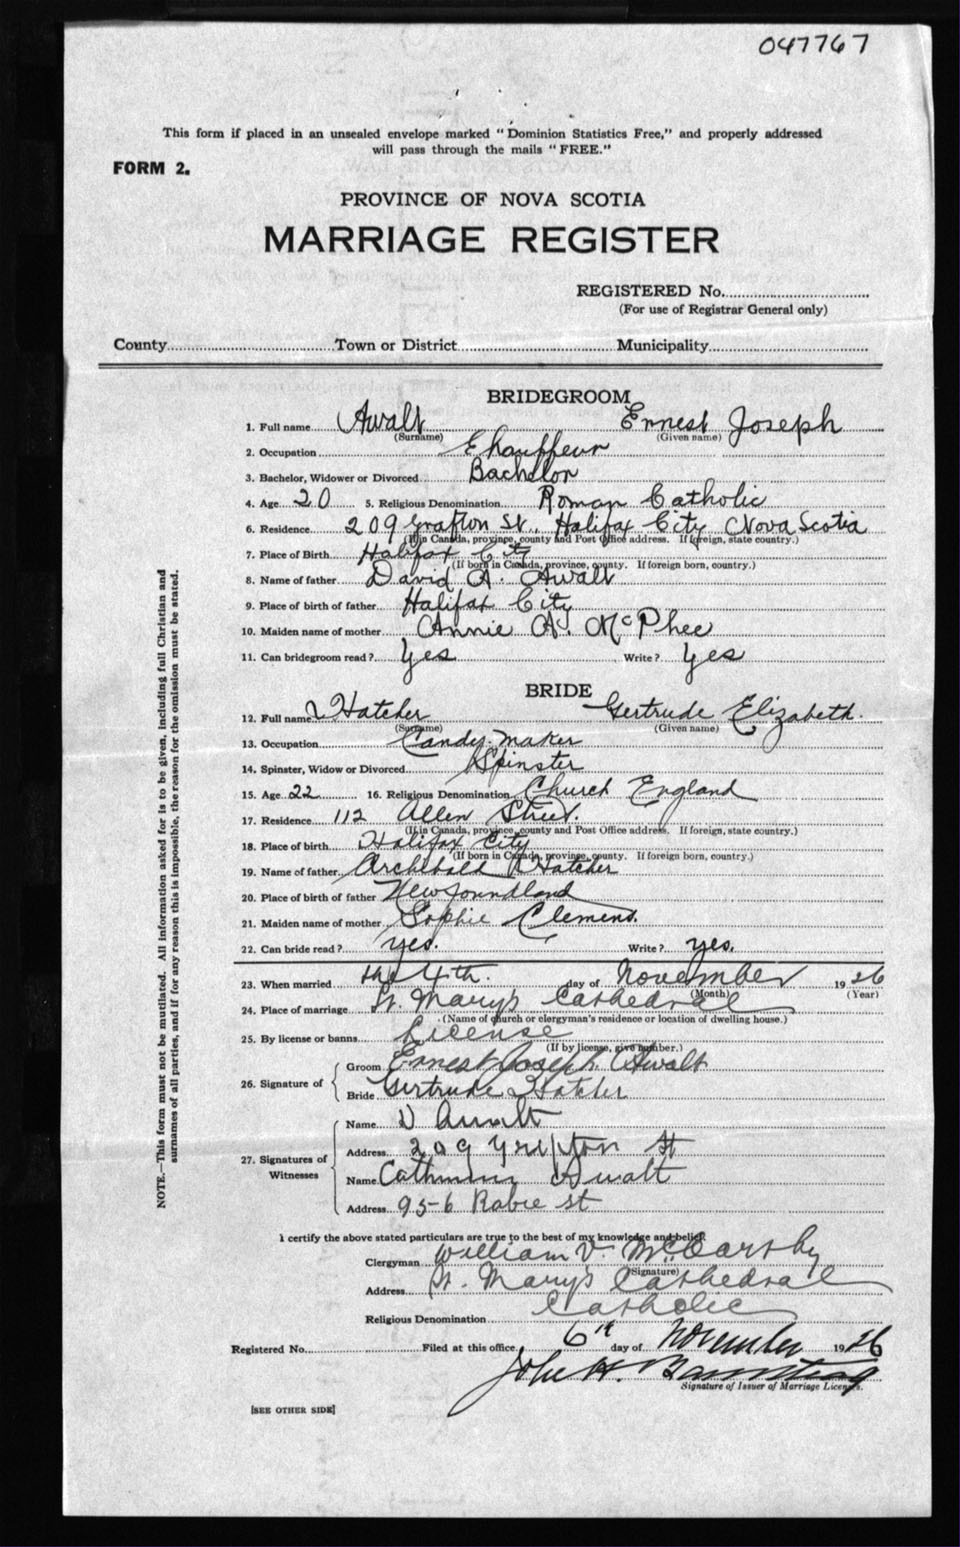 047767
This form if placed in an unsealed envelope marked "Dominion Statistics Free," and properly addressed
will pass through the mails "FREE."
FORM 2.
PROVINCE OF NOVA SCOTIA
MARRIAGE REGISTER
REGISTERED No.
(For use of Registrar General only)
County Town or District Municipality
BRIDEGROOM
1. Full name Awalt Ernest Joseph
(Surname) (Given name)
2. Occupation Chauffeur
3. Bachelor, Widower or Divorced Bachelor
4. Age 20 5. Religious Denomination Roman Catholic
6. Residence 209 Grafton St. Halifax City Nova Scotia
(If in Canada, province, county and Post Office address. If foreign, state country.)
7. Place of Birth Halifax City
(If born in Canada, province, county. If foreign born, country.)
8. Name of father David A. Awalt
9. Place of birth of father Halifax City
10. Maiden name of mother Annie A. McPhee
11. Can bridegroom read? Yes Write? Yes
BRIDE
12. Full name Hatcher Gertrude Elizabeth.
(Surname) (Given name)
13. Occupation Candy-maker
14. Spinster, Widow or Divorced Spinster
15. Age 22 16. Religious Denomination Church England
17. Residence 112 Allen Street.
(If in Canada, province, county and Post Office address. If foreign, state country.)
18. Place of birth Halifax City
(If born in Canada, province, county. If foreign born, country.)
19. Name of father Archibald Hatcher
20. Place of birth of father Newfoundland
21. Maiden name of mother Sophie Clemens.
22. Can bride read? yes. Write? yes.
23. When married the 4th. day of November 1926
(Month) (Year)
24. Place of marriage St. Mary's Cathedral
(Name of church or clergyman's residence or location of dwelling house.)
25. By license or banns License
(If by license, give number.)
26. Signature of
Groom Ernest Joseph Awalt
Bride Gertrude Hatcher
27. Signatures of Witnesses
Name D Awalt
Address 209 Grafton St
Name Awalt
Address 95-6 Robie st
I certify the above stated particulars are true to the best of my knowledge and belief.
Clergyman William V. McCarthy
(Signature)
Address St. Mary's Cathedral
Religious Denomination Catholic
Registered No. Filed at this office 6th day of November 1926
John H.
Signature of Issuer of Marriage Licenses.
[SEE OTHER SIDE]
NOTE.—This form must not be mutilated. All information asked for is to be given, including full Christian and
surnames of all parties, and if for any reason this is impossible, the reason for the omission must be stated.